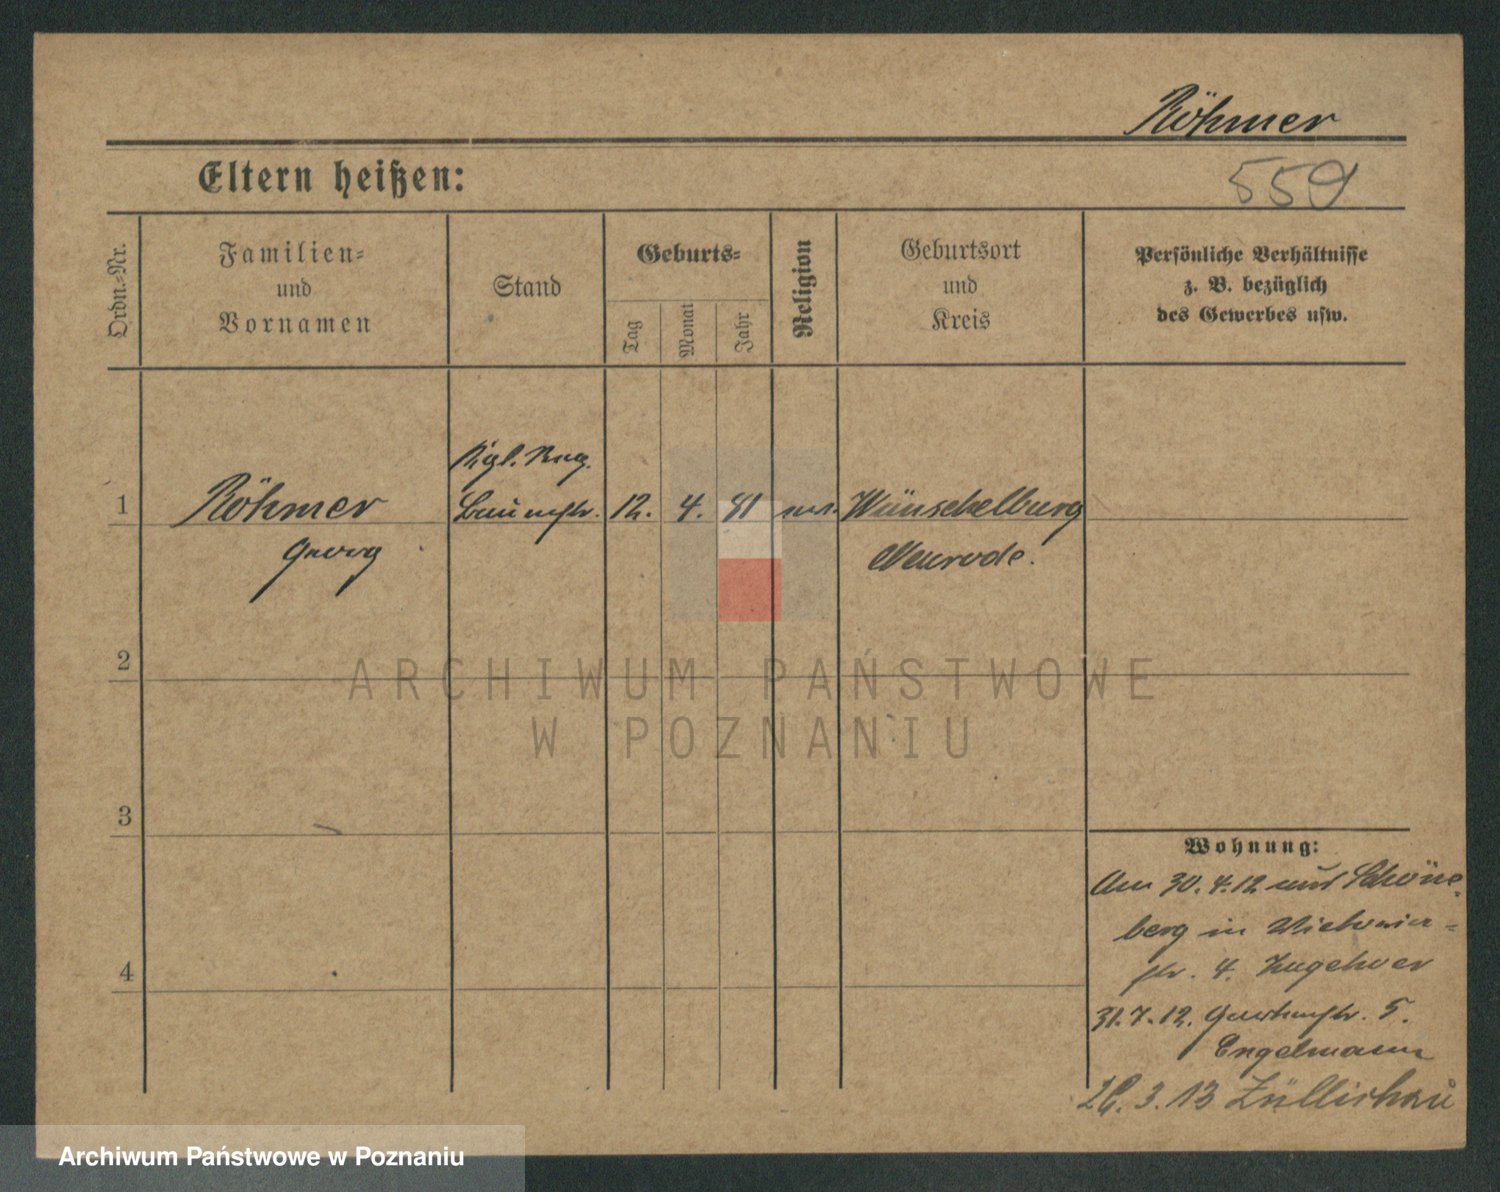 Röhmer
Eltern heißen:
559
Ordn.-Nr.
Familien-
und
Vornamen
Stand
Geburts-
Tag
Monat
Jahr
Religion
Geburtsort
und
Kreis
Persönliche Verhältnisse
z. B. bezüglich
des Gewerbes usw.
Kgl. Reg.
1 Röhmer Baumstr. 12. 4. 81 Wünschelburg
Georg Neurode.
2
ARCHIWUM PAŃSTWOWE
W POZNANIU
3
Wohnung:
Am 30.4.12 aus Schöne-
berg in
str. 4.
4
31.7.12. Gartenstr. 5.
Engelmann
3.13 Züllichau
Archiwum Państwowe w Poznaniu